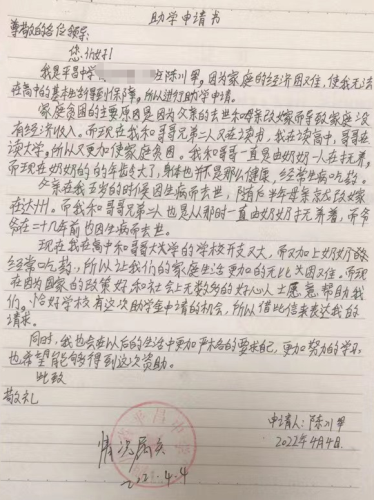 助学申请书
尊敬的各位领导:
您们好!
我是平昌中学 陈川军,因为家庭的经济困难,使我无法
在高中的基本生活得到保障,所以进行助学申请。
家庭贫困的主要原因是因为父亲的去世和母亲改嫁而导致家庭没
有经济收入。而现在我和哥哥兄弟二人又在读书,我在读高中,哥哥在
读大学,所以又更加使家庭贫困。我和哥哥一直是由奶奶一人在扶养,
而现在奶奶的年龄大了,身体也不是那么健康,经常生病吃药。
父亲在我五岁的时候因生病而去世,随后半年母亲京改嫁
在达州。而我和哥哥兄弟二人也是从那时一直由奶奶扶养着,而爷
爷在二十几年前也因生病而去世。
现在我在高中和哥哥大学的学校开支又大,而又加上奶奶的
经常吃药,所以让我们的家庭生活更加的无比贫困又难。而现
在因为国家的政策好和社会上无数多的好心人士愿意帮助我
们。恰好学校有这次助学金申请的机会,所以借此信来表达我的
请求。
同时,我也会在以后的生活中更加严格的要求自己,更加努力的学习,
也希望能够得到这次资助。
此致
敬礼
申请人:陈川军
2022年4月4日
情况属实
2022.4.4